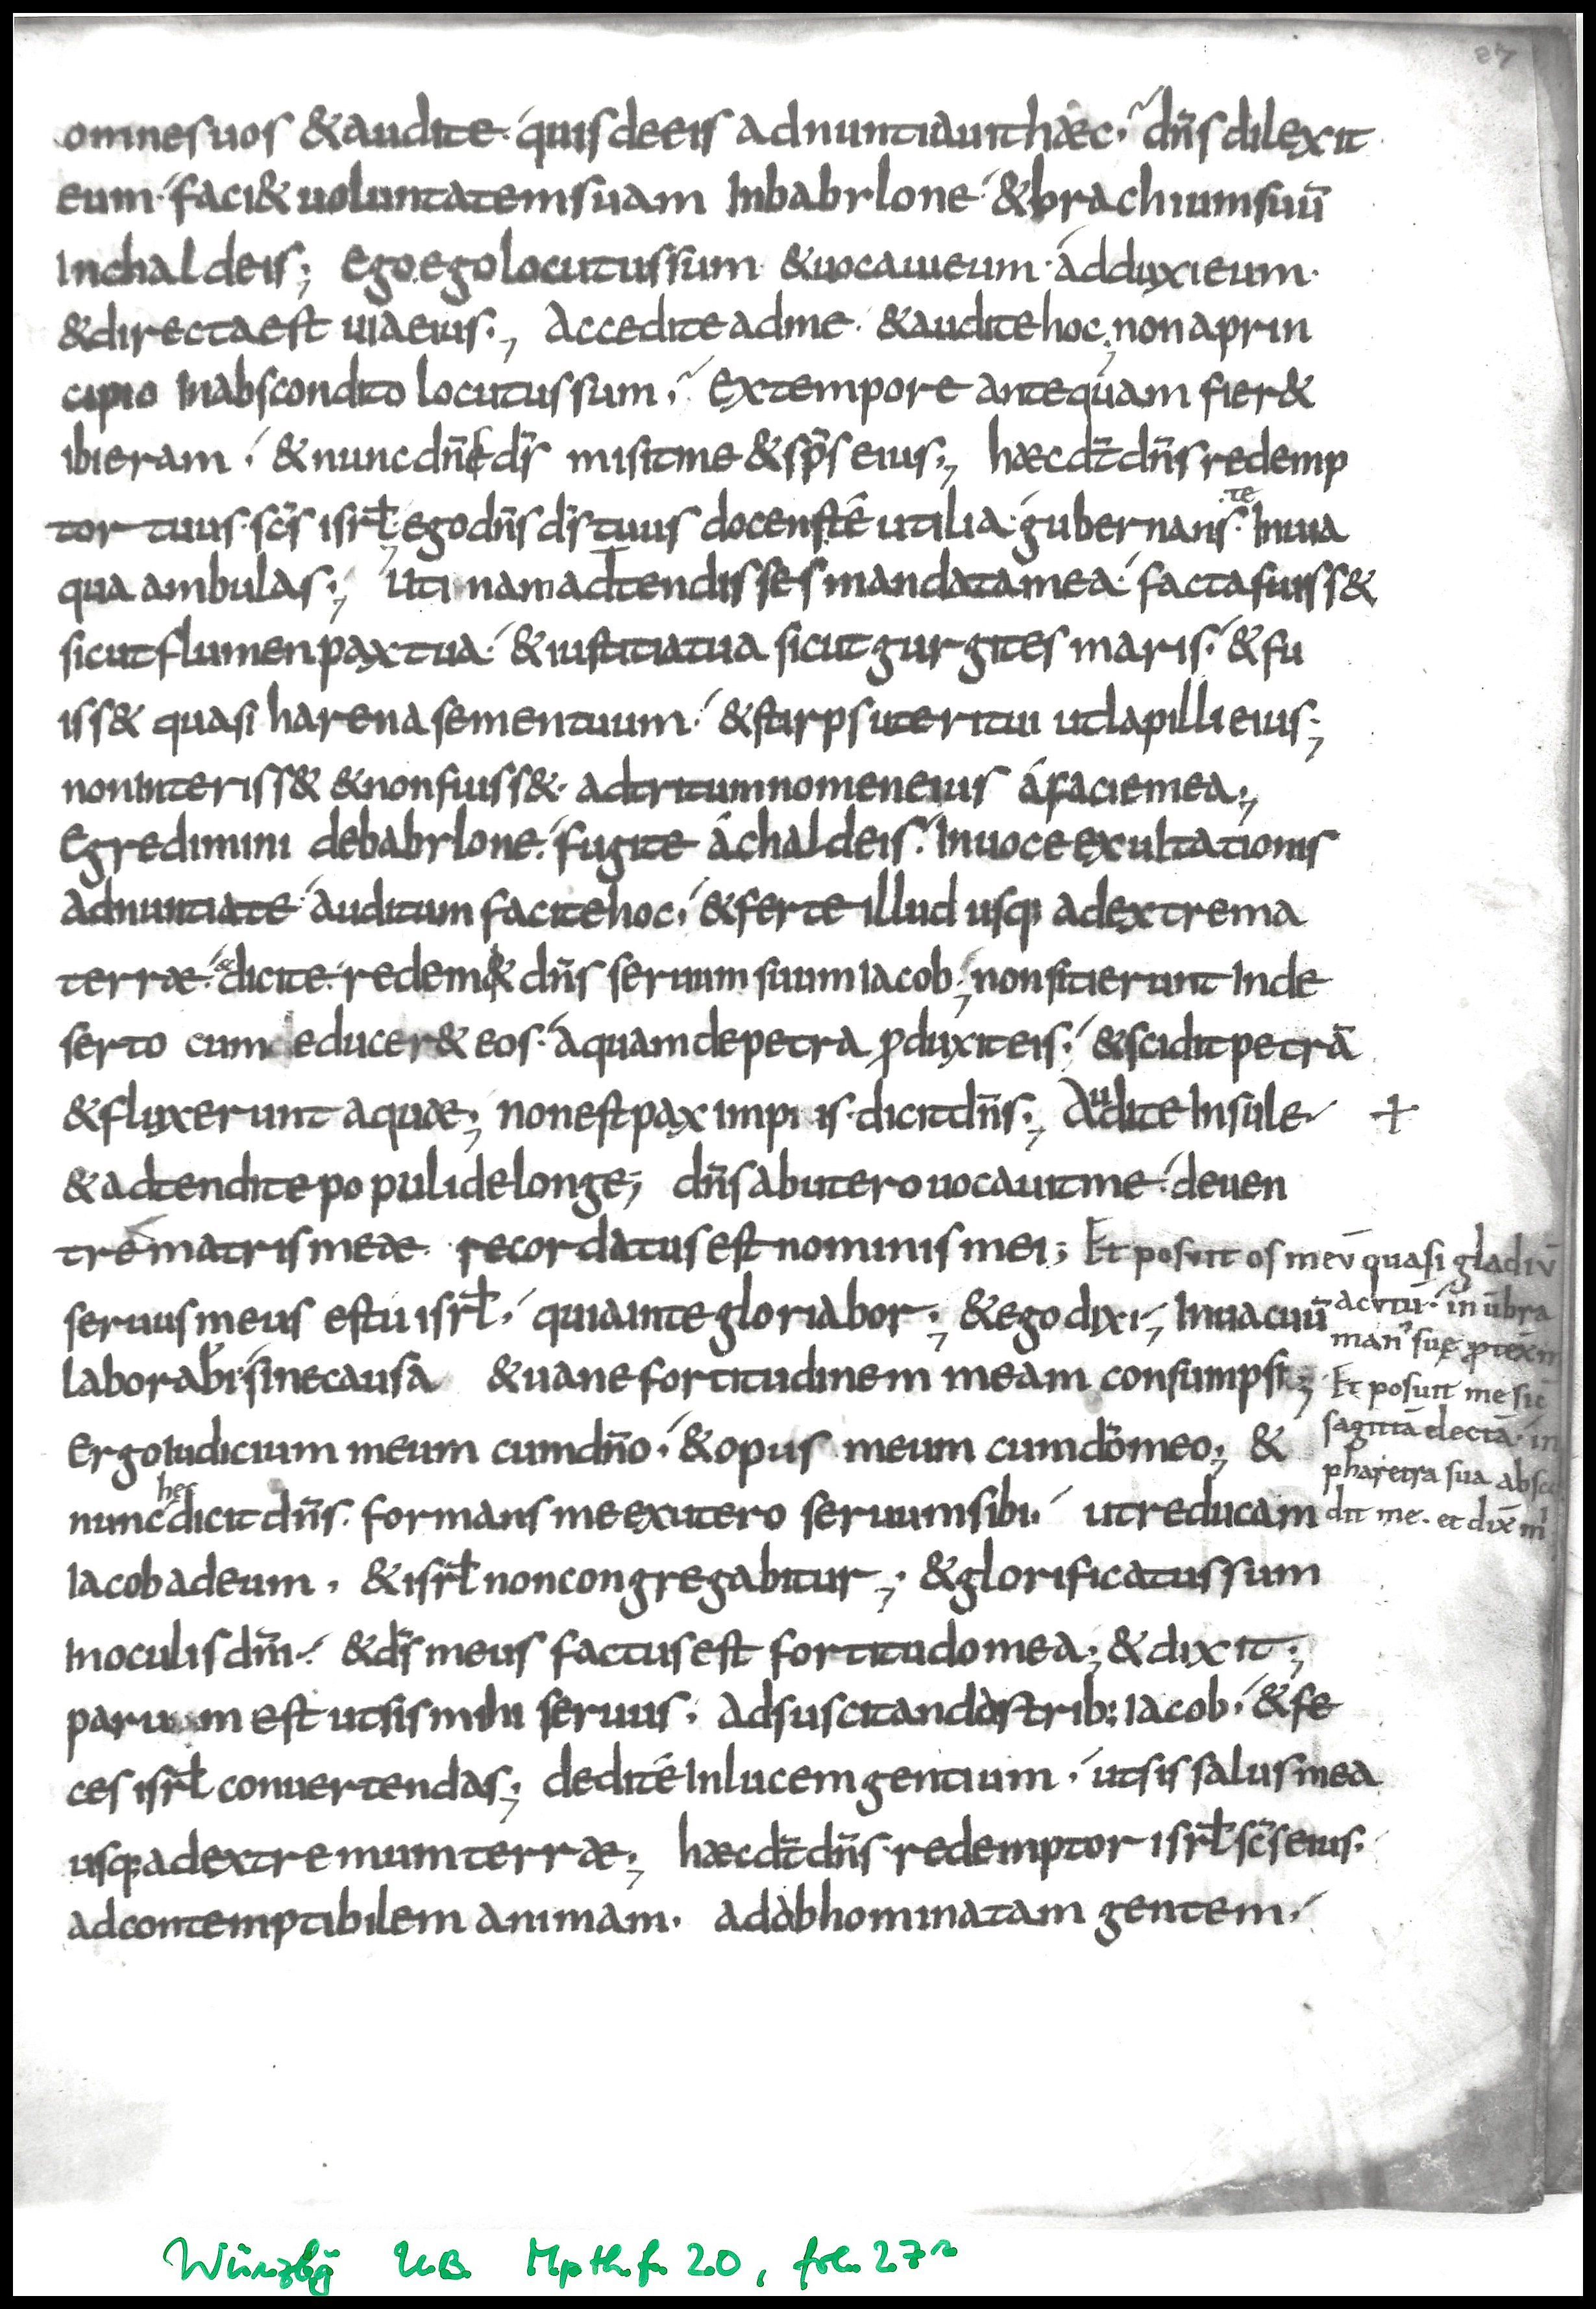 27
omnes uos & audite· quis de eis adnuntiauit hæc· dn̄s dilexit
eum· faci& uoluntatem suam In babylone· & brachium suū
In chaldeis; Ego ego locutus sum & uocaui eum· adduxi eum·
& directa est uia eius·, Accedite ad me· & audite hoc; non a prin
cipio In abscondito locutus sum· Ex tempore antequam fier&
ibi eram· & nunc dn̄s ds̄ misit me & sp̄s eius·, hæc dt̄ dn̄s redemp
tor tuus· sc̄s isrł; ego dn̄s ds̄ tuus docens te utilia· gubernans te· In uia
qua ambulas·, Utinam adtendisses mandata mea· facta fuiss&
sicut flumen pax tua· & iustitia tua sicut gurgites maris· & fu
iss& quasi harena semen tuum· & stirps uteri tui ut lapilli eius;
non Interiss& & non fuiss&· adtritum nomen eius á facie mea·,
Egredimini de babylone· fugite á chaldeis· In uoce exultationis
adnuntiate· auditum facite hoc· & ferte illud usq; ad extrema
terræ· & dicite· redem& dn̄s seruum suum Iacob; non sitierunt In de
serto cum educer& eos· aquam de petra ꝓduxit eis· & scidit petrā
& fluxerunt aquæ; non est pax impiis· dicit dn̄s·, Audite Insule +
& adtendite populi de longe; dn̄s ab utero uocauit me· de uen
tre matris meæ recordatus est nominis mei; Et posuit os meū quasi gladiū
acutū· in ūbra
man᾿ suę ꝓtex̄ m
Et posuit me sic̄
sagittā electā· in
pharetra sua absc
dit me· et dix̄ m
seruus meus es tu isrł· quia in te gloriabor·; & ego dixi·, In uacuū
laboraui sine causa & uane fortitudinem meam consumpsi;
Ergo Iudicium meum cum dn̄o· & opus meum cum dō meo; &
nunc hec dicit dn̄s· formans me ex utero seruum sibi· ut reducam
Iacob ad eum· & isrł non congregabitur·; & glorificatus sum
In oculis dn̄i· & ds̄ meus factus est fortitudo mea; & dixit;
parum est ut sis mihi seruus· ad suscitandas trib; Iacob· & fe
ces isrł conuertendas; dedi te In lucem gentium· ut sis salus mea
usq; ad extremum terræ; hæc dt̄ dn̄s· redemptor isrł sc̄s eius·
ad contemptibilem animam· ad abhominatam gentem·
Würzbg U.B. M.p.th.f. 20, fol. 27r